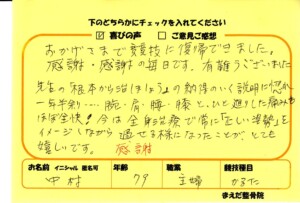 下のどちらかにチェックを入れてください
☑ 喜びの声 □ ご意見ご感想
おかげさまで競技に復帰できました。
感謝・感謝の毎日です。有難うございました
先生の根本から治(ちりょう)の納得のいく説明に
一年半余り… 腕、肩、腰、膝と、ひと通りした痛みも
ほぼ全快! 今は全身治療で常に「正しい姿勢」を
イメージしながら過せる様になったことが、とても
嬉しいです。 感謝
お名前 イニシャル 匿名可 年齢 職業 競技種目
中村 79 主婦 かるた
まえだ整骨院